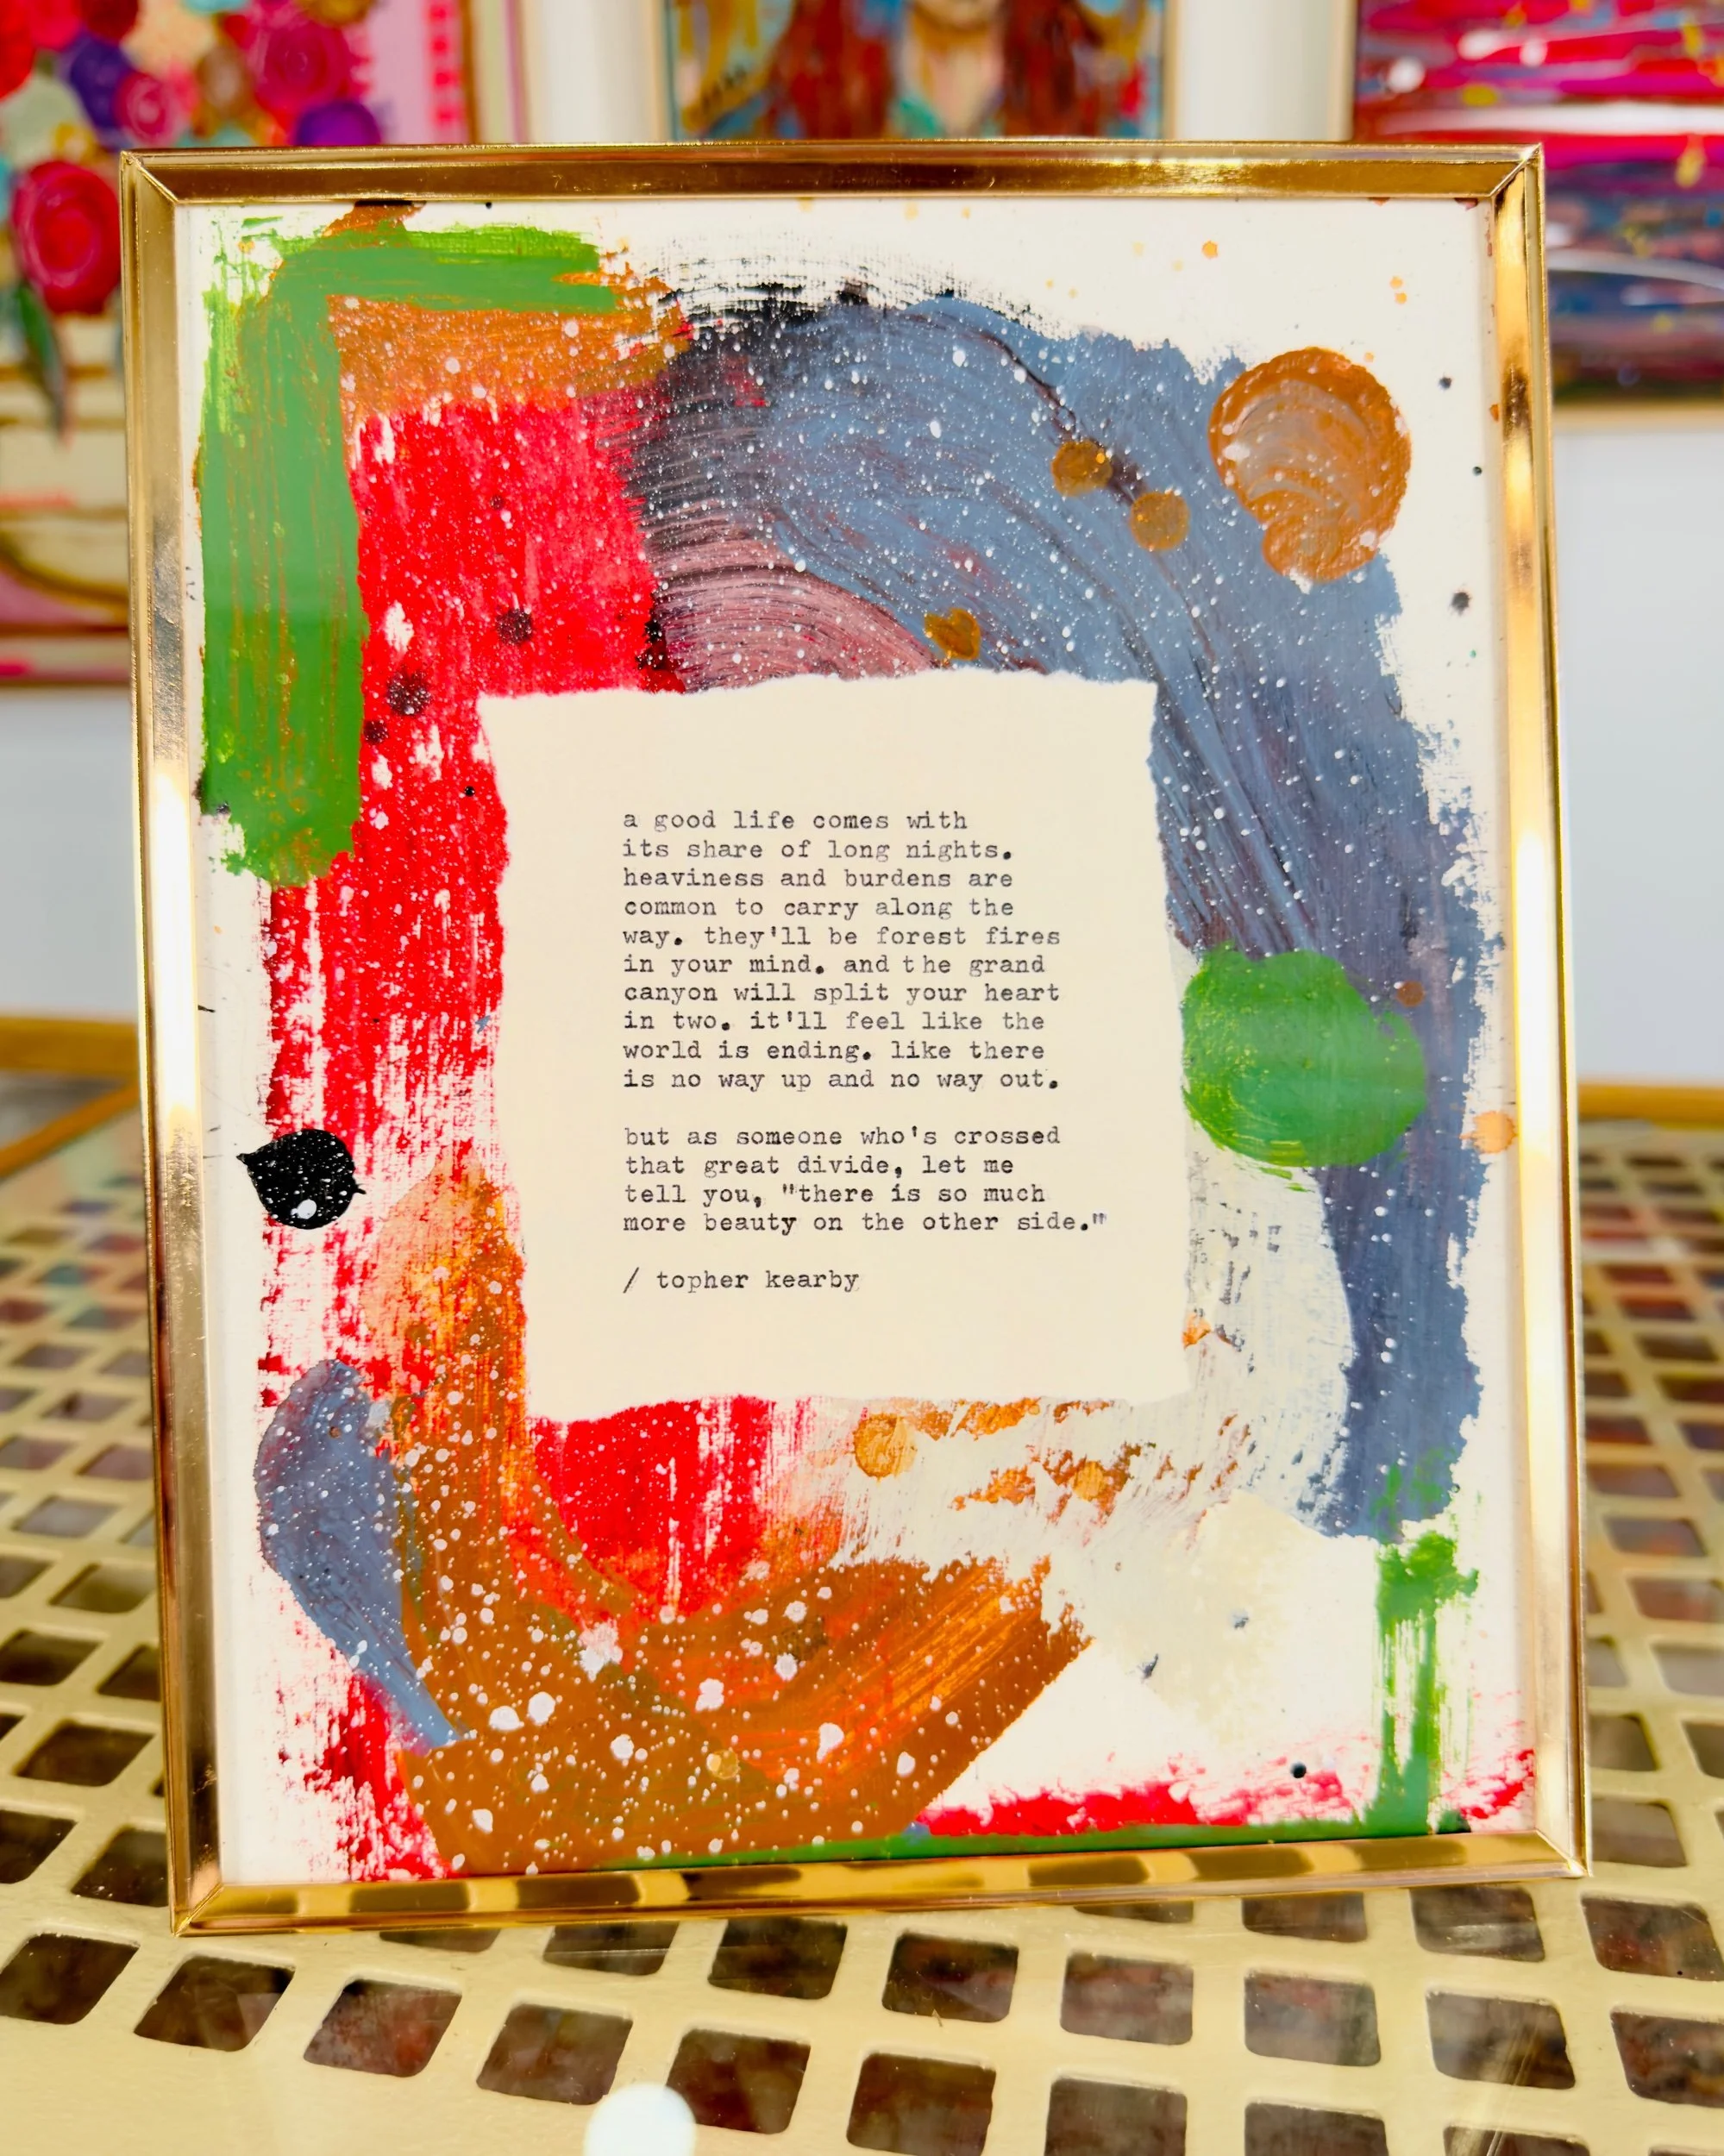 a good life comes with
its share of long nights.
heaviness and burdens are
common to carry along the
way. they'll be forest fires
in your mind. and the grand
canyon will split your heart
in two. it'll feel like the
world is ending. like there
is no way up and no way out.
but as someone who's crossed
that great divide, let me
tell you, "there is so much
more beauty on the other side."
/ topher kearby